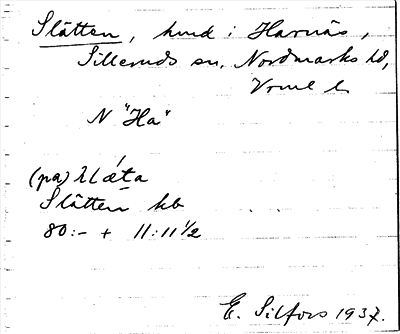 Slätten, hmd i Harnäs,
Silleruds sn, Nordmarks hd,
Vrml l.
N "Ha"
(pa) slǽta
Slätten kb
80:- + 11:11 1/2
E. Silfors 1937.